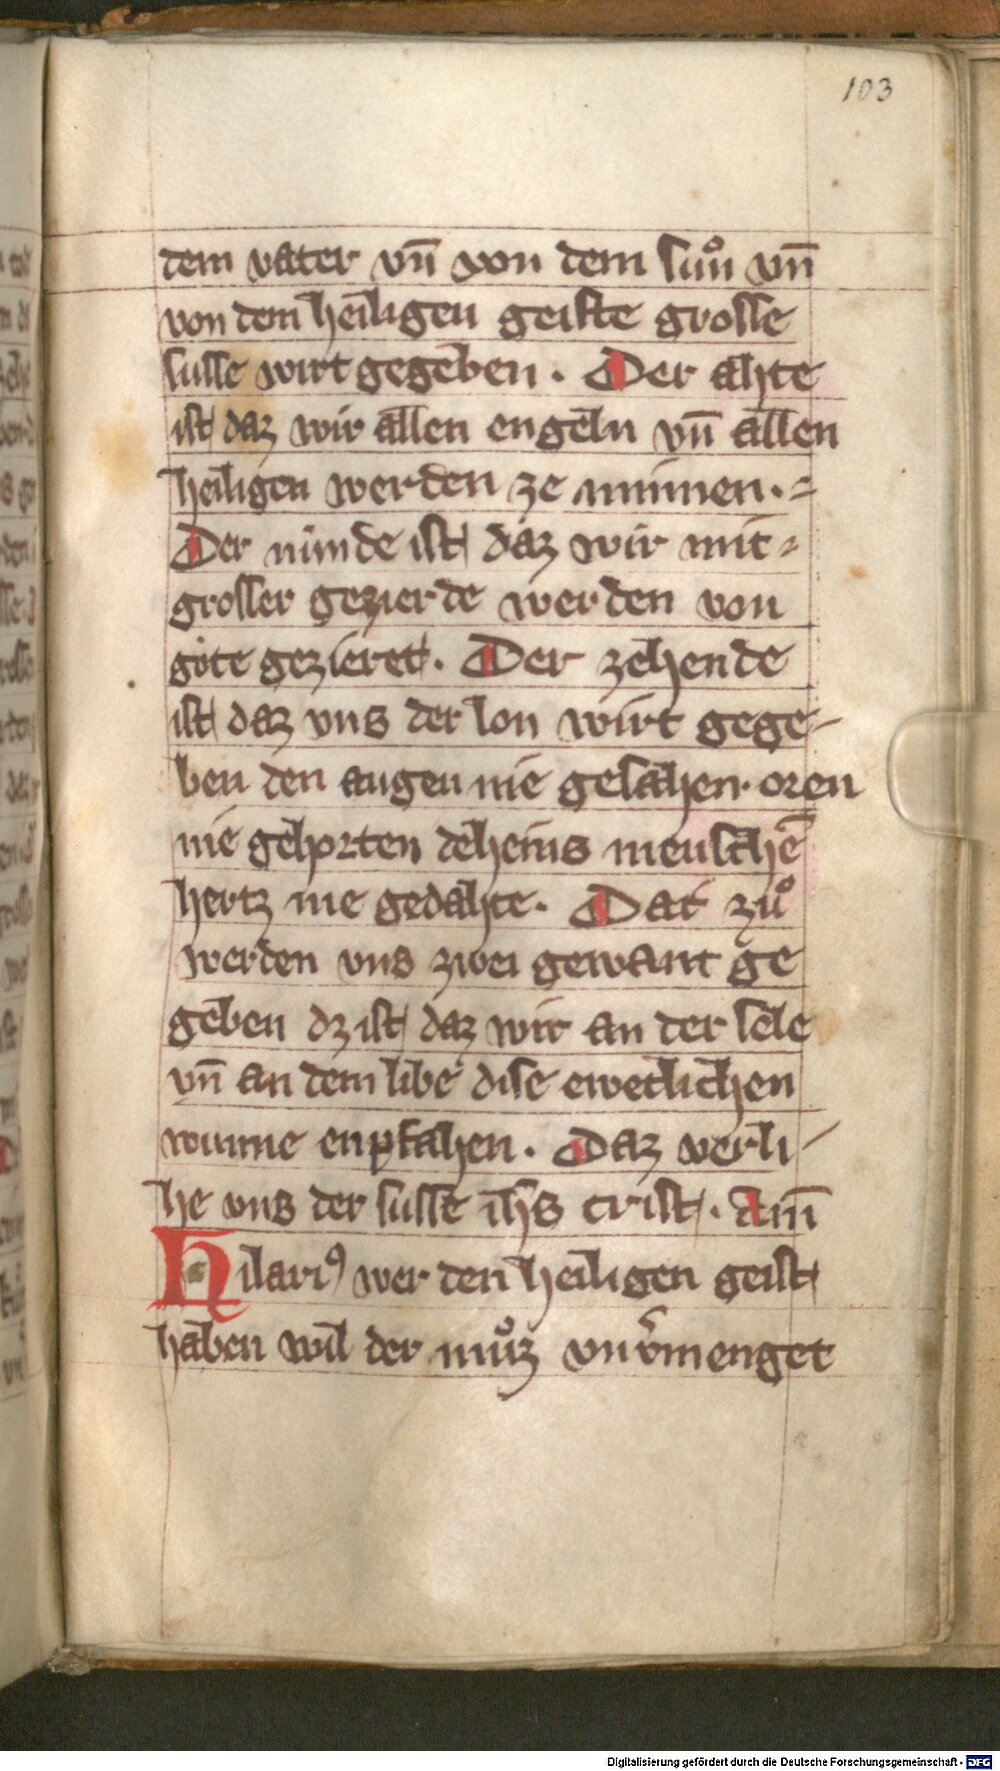 103
dem vater vn̄ von dem suͦn vn̄
von dem heiligen geiste grosse
susse wirt gegeben . Der ahte
ist daz wir allen engeln vn̄ allen
heiligen werden ze minnen . =
Der núnde ist daz wir mit =
grosser gezierde werden von
gote gezieret . Der zehende
ist daz vns der lon wirt gege-
ben den augen nie gesahen . oren
nie gehorten deheins menschē
hertz nie gedahte . Dar zuͦ
werden vns zwei gewant ge
geben dz ist daz wir an der sele
vn̄ an dem libe dise eweclichen
wunne enpfahen . Daz verli-
he vns der susse ih̄s crist . Am̄
Hilariꝰ wer den heiligen geist
haben wil der muͦz vnv̄menget
Digitalisierung gefördert durch die Deutsche Forschungsgemeinschaft - DFG